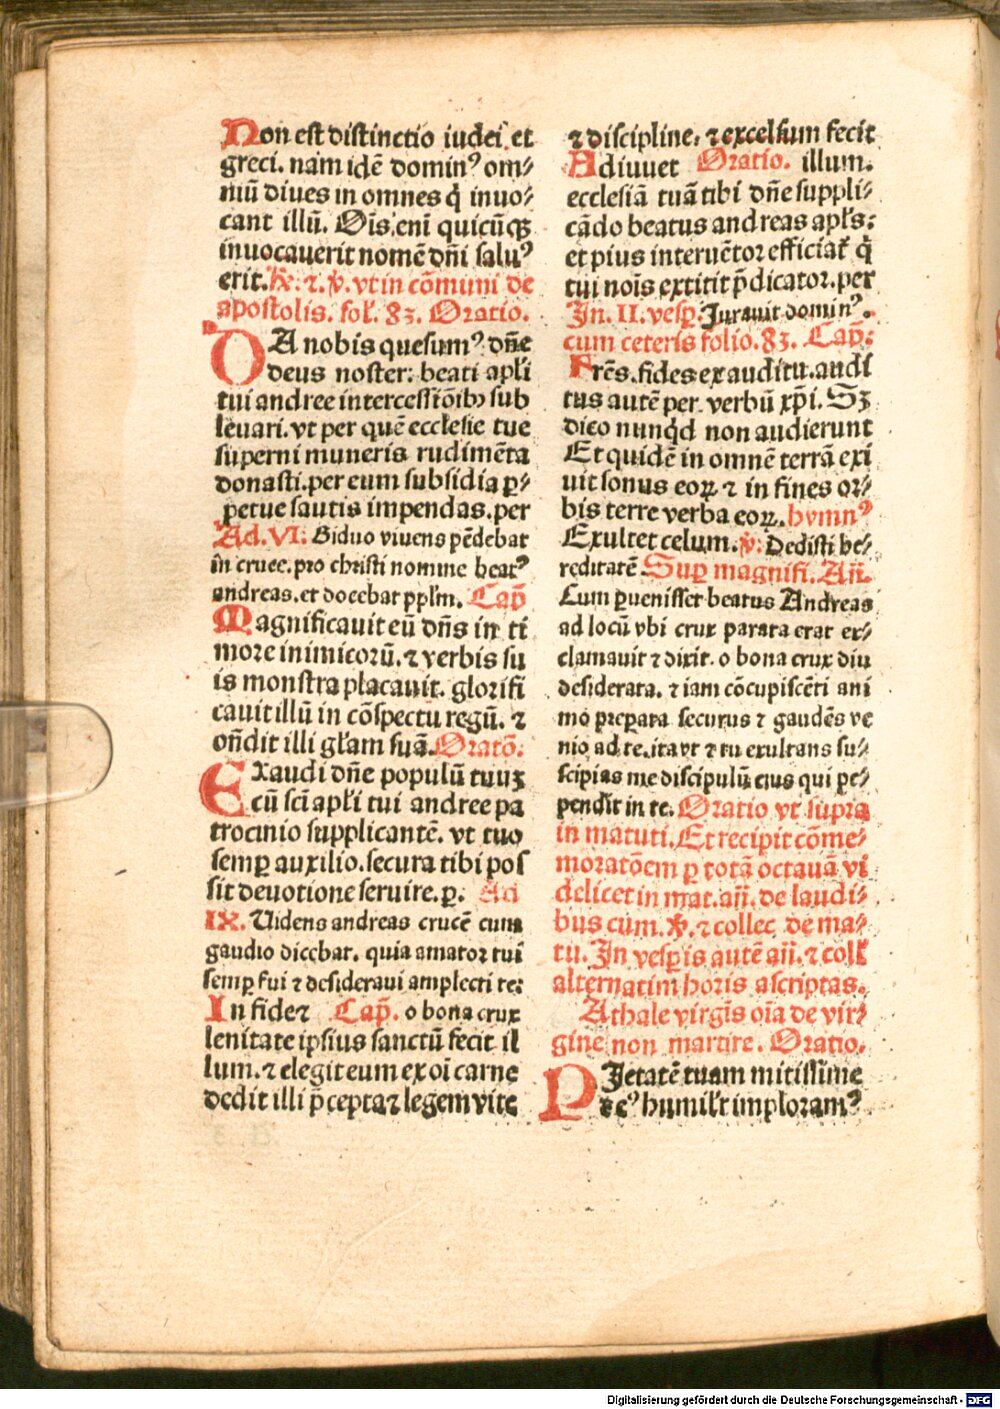 Non est distinctio iudei et
greci. nam idē domin⁹ om⸗
niū diues in omnes q̇ inuo⸗
cant illū. Oīs enī quicūqꝫ
inuocauerit nomē dn̄i salu⁹
erit. ℟. ⁊. ℣. vt in cōmuni de
apostolis. fol'. 83. Oratio.
DA nobis quesum⁹ dn̄e
deus noster: beati apl'i
tui andree intercessiōibꝰ sub
leuari. vt per quē ecclesie tue
superni muneris rudimēta
donasti. per eum subsidia ꝑ⸗
petue salutis impendas. per
Ad. VI: Biduo viuens pēdebat
in cruce. pro christi nomine beat⁹
andreas. et docebat ppl'm. Cap̄
Magnificauit eū dn̄s in ti
more inimicorū. ⁊ verbis su
is monstra placauit. glorifi
cauit illū in cōspectu regū. ⁊
on̄dit illi gl'am suā. Oratō.
EXaudi dn̄e populū tuuꝫ
cū sc̄i apl'i tui andree pa
trocinio supplicantē. vt tuo
semꝑ auxilio. secura tibi pos
sit deuotione seruire. ꝑ. Ad
IX. Uidens andreas crucē cum
gaudio dicebat. quia amator tui
semꝑ fui ⁊ desideraui amplecti te:
In fide ⁊ Cap̄. o bona crux
lenitate ipsius sanctū fecit il
lum. ⁊ elegit eum ex oī carne
dedit illi p̄cepta ⁊ legem vite
⁊ discipline. ⁊ excelsum fecit
Adiuuet Oratio. illum.
ecclesiā tuā tibi dn̄e suppli⸗
cādo beatus andreas apl's:
et pius interuētor efficiat' q̇
tui noīs extitit p̄dicator. per
In. II. vesꝑ: Jurauit domin⁹.
cum ceteris folio. 83. Cap̄:
Frēs. fides ex auditu. audi
tus autē per verbū xp̄i. Sꝫ
dico nunq̇d non audierunt
Et quidē in omnē terrā exi
uit sonus eoꝝ ⁊ in fines or⸗
bis terre verba eoꝝ. hymn⁹
Exultet celum. ℣: Dedisti he⸗
reditatē Suꝑ magnifi. Añ.
Cum ꝑuenisset beatus Andreas
ad locū vbi crux parata erat ex⸗
clamauit ⁊ dixit. o bona crux diu
desiderata. ⁊ iam cōcupiscēti ani
mo preparata securus ⁊ gaudēs ve
nio ad te. ita vt ⁊ tu exultans su⸗
scipias me discipulū eius qui pe⸗
pendit in te. Oratio vt supra
in matuti. Et recipit cōme⸗
moratōem ꝑ totā octauā vi
delicet in mat. añ. de laudi⸗
bus cum. ℣. ⁊ collec. de ma⸗
tu. In vesꝑis autē añ. ⁊ coll'
alternatim horis ascriptas.
Athale virgīs oīa de vir⸗
gine non martire. Oratio.
PIetatē tuam mitissime
de⁹ humilit' imploram⁹
Digitalisierung gefördert durch die Deutsche Forschungsgemeinschaft - DFG